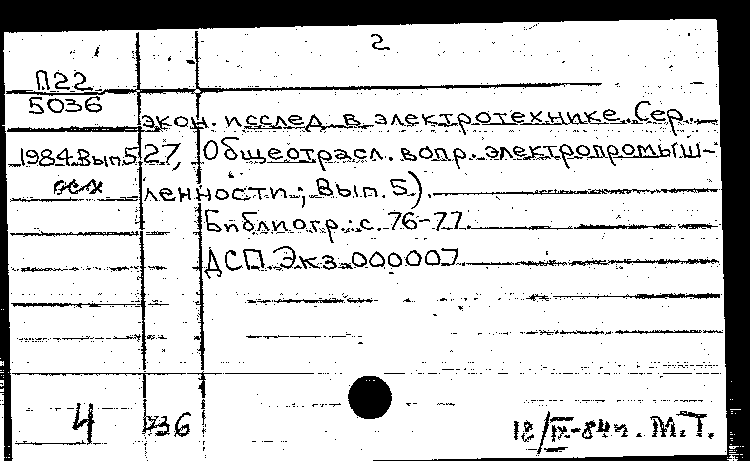 2
П22
5036
экон. исслед. в электротехнике. Сер.
1984.Вып.5 27, Общеотрасл. вопр. электропромыш-
ленности; Вып. 5).
Библиогр.: с. 76-77.
ДСП. Экз. 000007
4 36 18/IX-84г. М.Т.